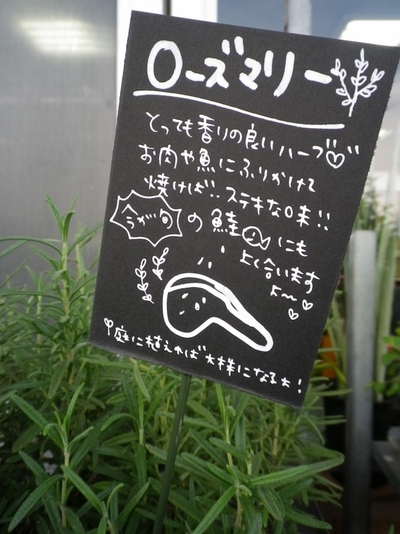 ローズマリー
とっても香りの良いハーブ♡
お肉や魚にふりかけて
焼けば‥ステキなロ味!!
の鮭にも
よく合います
よ〜♡
庭に植えれば大株になるよ!